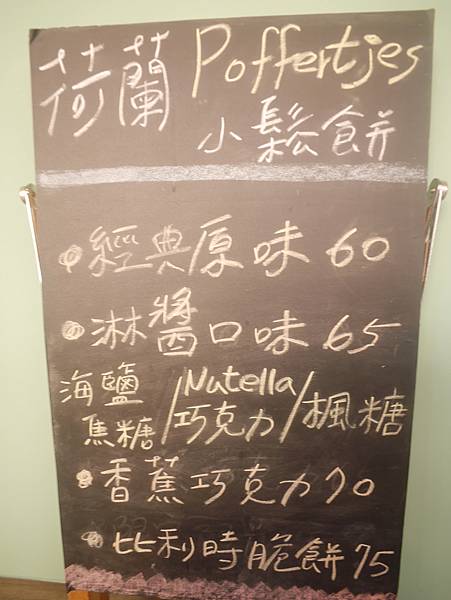 荷蘭 Poffertjes
小鬆餅
經典原味 60
淋醬口味 65
海鹽焦糖/Nutella巧克力/楓糖
香蕉巧克力 70
比利時脆餅 75